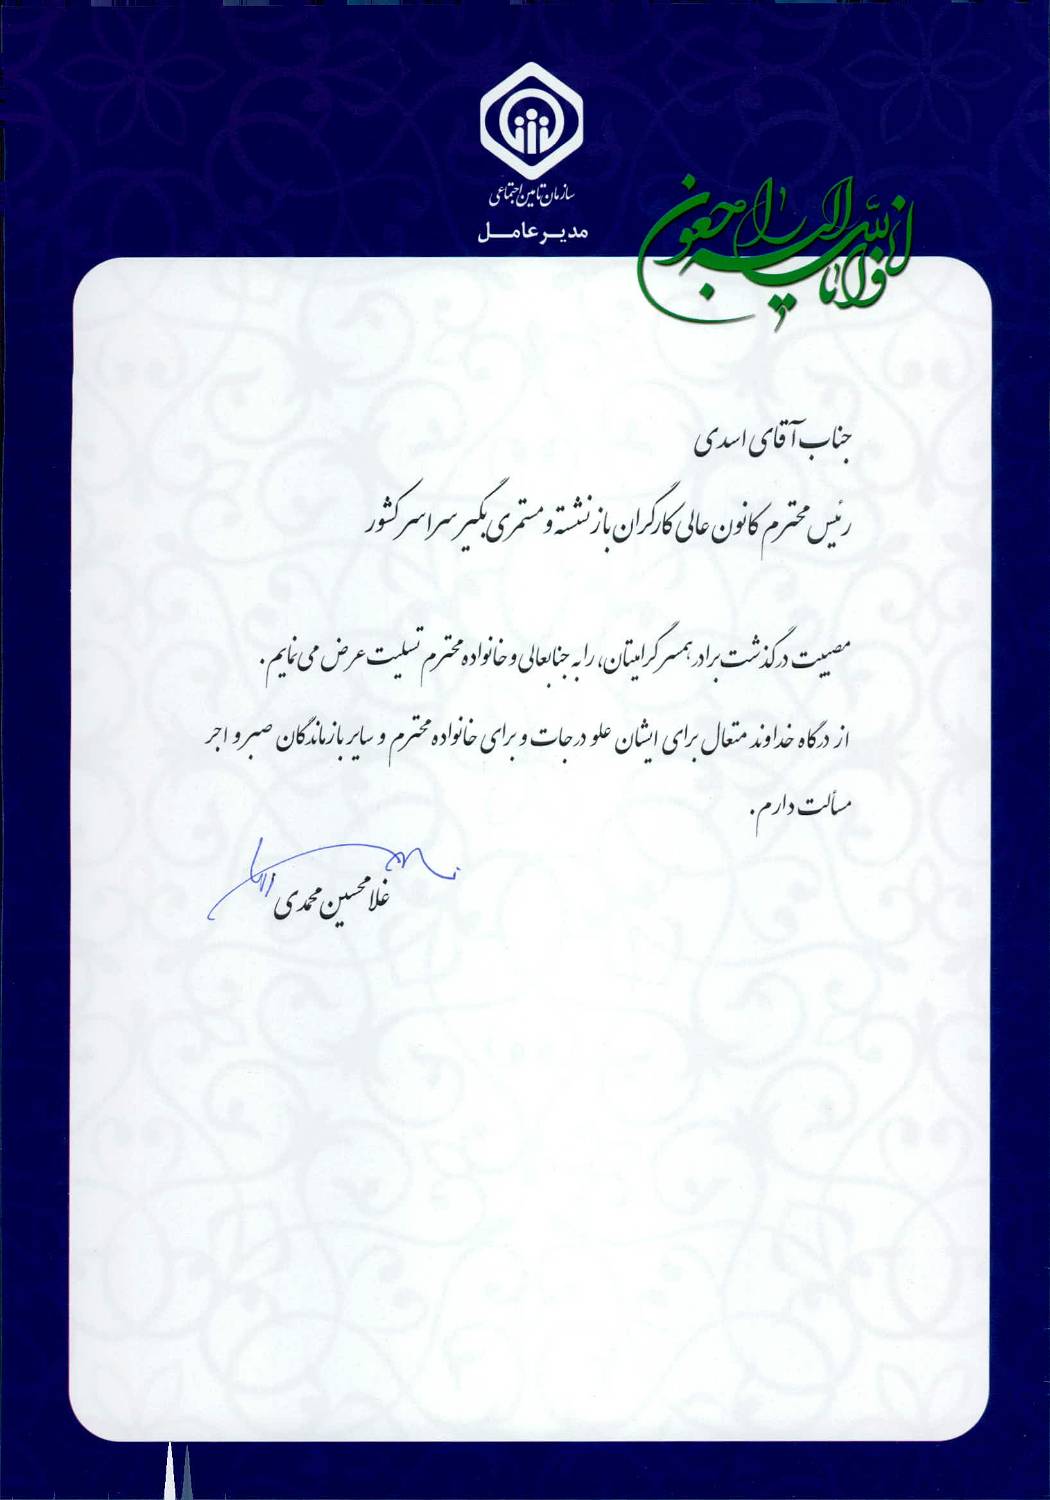 سازمان تامین اجتماعی
مدیرعامل
انا لله و انا الیه راجعون
جناب آقای اسدی
رئیس محترم کانون عالی کارگران بازنشسته و مستمری بگیر سراسر کشور
مصیبت درگذشت برادر همسر گرامیتان، را به جنابعالی و خانواده محترم تسلیت عرض می نمایم.
از درگاه خداوند متعال برای ایشان علو درجات و برای خانواده محترم و سایر بازماندگان صبر و اجر
مسألت دارم.
غلامحسین محمدی